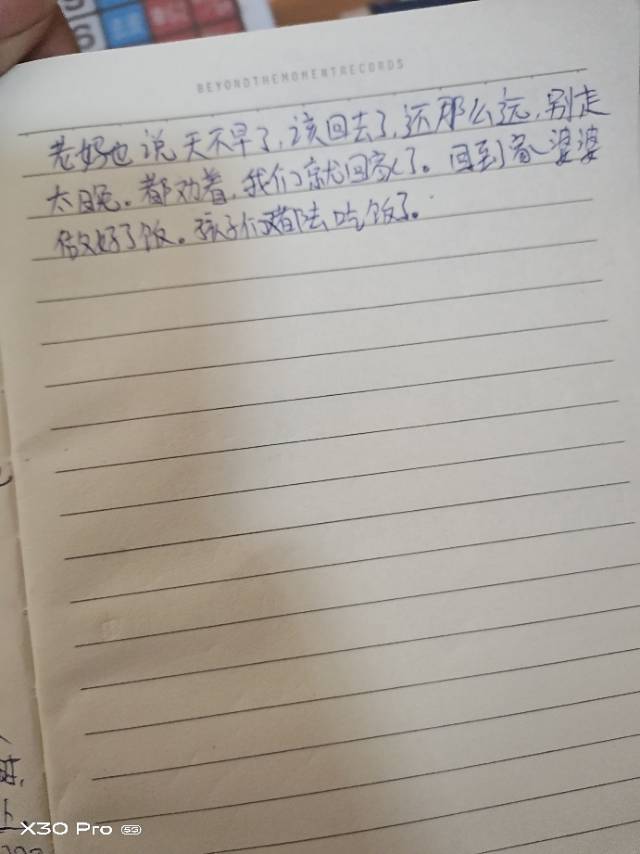 BEYONDTHEMOMENTRECORDS
老妈也说天不早了,该回去了,还那么远,别走
太晚。都劝着,我们就回家了。回到家婆婆
做好了饭。孩子们都去吃饭了。
上
X30 Pro 5G